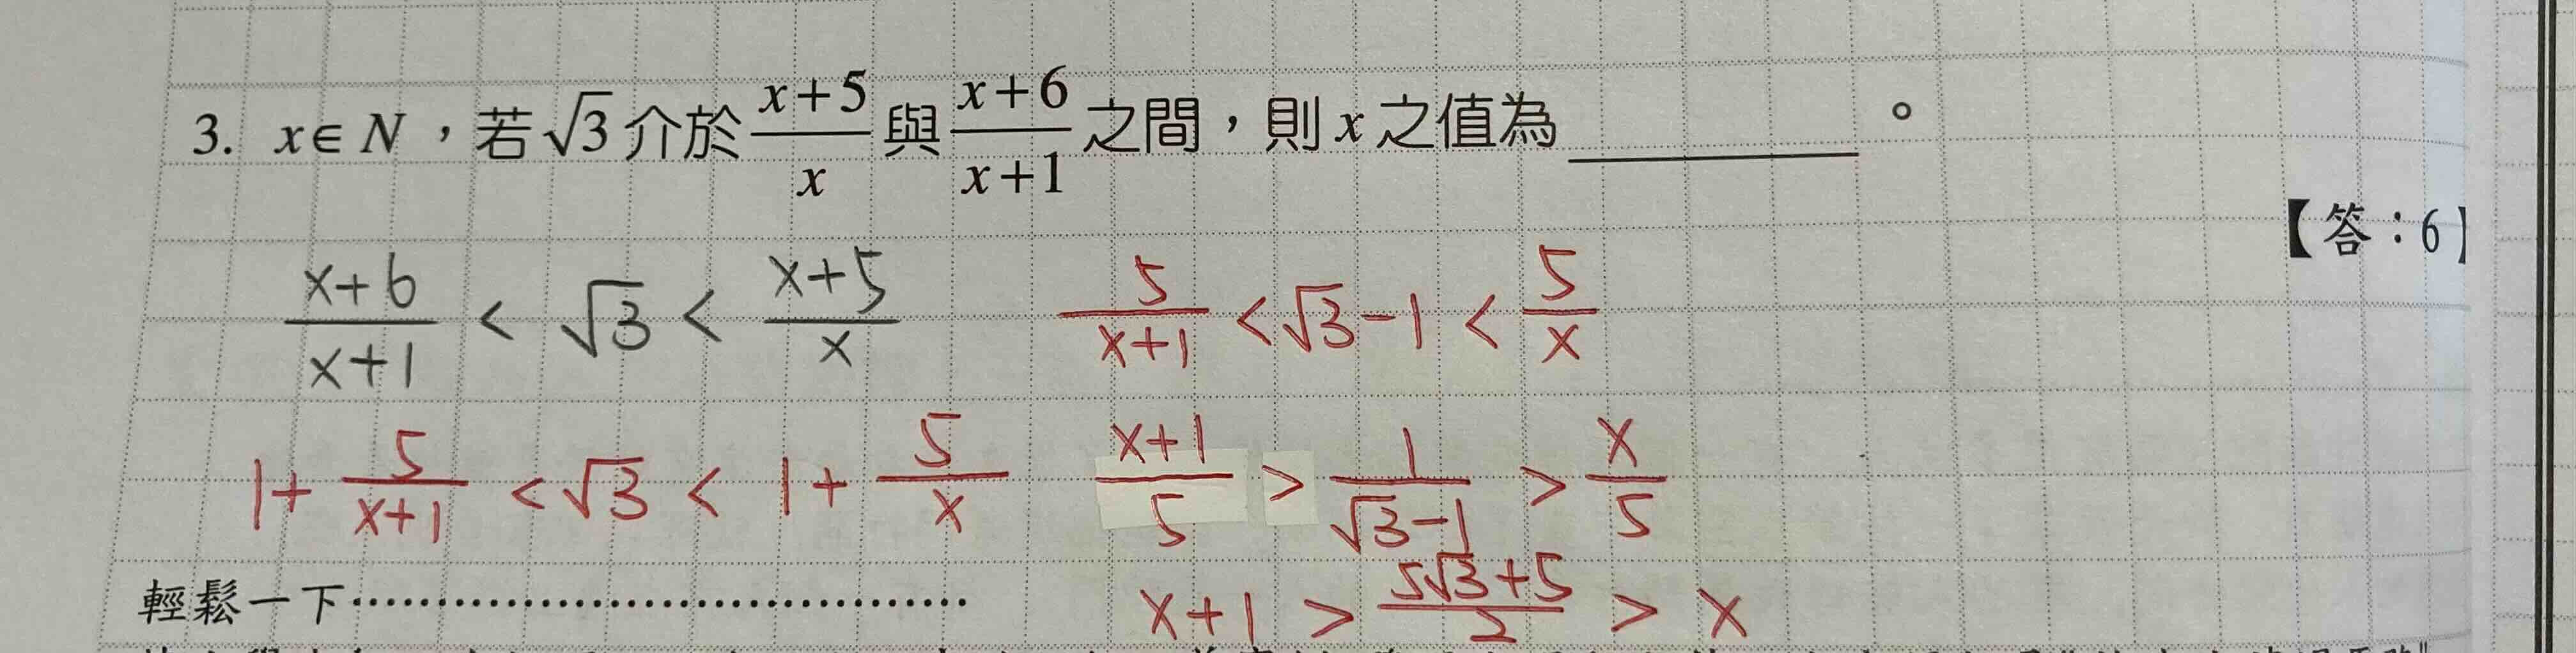 3. x∈N，若√3介於(x+5)/x與(x+6)/(x+1)之間，則x之值為________。
【答：6】
(x+6)/(x+1) < √3 < (x+5)/x
5/(x+1) < √3-1 < 5/x
1+5/(x+1) < √3 < 1+5/x
(x+1)/5 > 1/(√3-1) > x/5
x+1 > (5√3+5)/2 > x
輕鬆一下……………………………